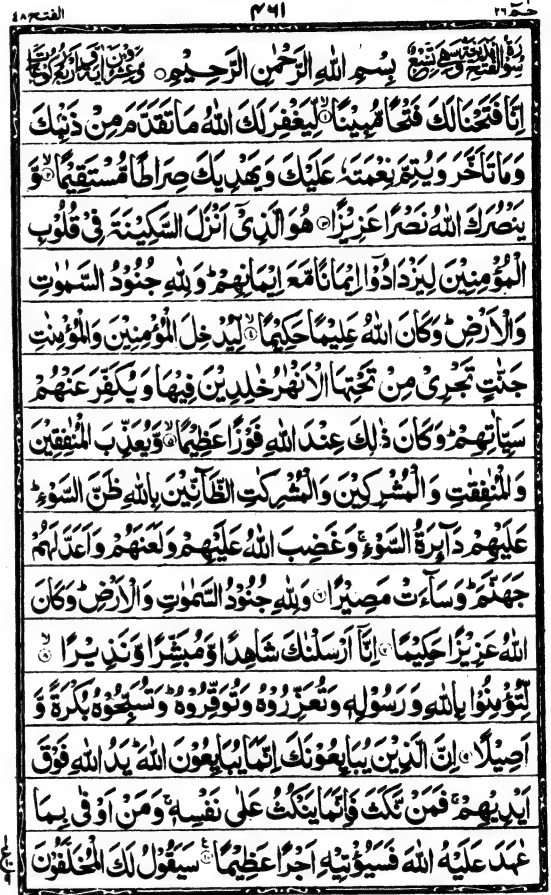 حٰمٓ ٢٦ ٤٦١ الفتح ٤٨
بِسْمِ اللهِ الرَّحْمٰنِ الرَّحِيْمِ
اِنَّا فَتَحْنَا لَكَ فَتْحًا مُّبِيْنًا ۙ‏﴿١﴾ لِّيَغْفِرَ لَكَ اللهُ مَا تَقَدَّمَ مِنْ ذَنْۢبِكَ
وَمَا تَاَخَّرَ وَيُتِمَّ نِعْمَتَهٗ عَلَيْكَ وَيَهْدِيَكَ صِرَاطًا مُّسْتَقِيْمًا ۙ‏﴿٢﴾ وَّ
يَنْصُرَكَ اللهُ نَصْرًا عَزِيْزًا ﴿٣﴾ هُوَ الَّذِيْۤ اَنْزَلَ السَّكِيْنَةَ فِيْ قُلُوْبِ
الْمُؤْمِنِيْنَ لِيَزْدَادُوْۤا اِيْمَانًا مَّعَ اِيْمَانِهِمْ ؕ وَلِلّٰهِ جُنُوْدُ السَّمٰوٰتِ
وَالْاَرْضِ ؕ وَكَانَ اللهُ عَلِيْمًا حَكِيْمًا ۙ‏﴿٤﴾ لِّيُدْخِلَ الْمُؤْمِنِيْنَ وَالْمُؤْمِنٰتِ
جَنّٰتٍ تَجْرِيْ مِنْ تَحْتِهَا الْاَنْهٰرُ خٰلِدِيْنَ فِيْهَا وَيُكَفِّرَ عَنْهُمْ
سَيِّاٰتِهِمْ ؕ وَكَانَ ذٰلِكَ عِنْدَ اللهِ فَوْزًا عَظِيْمًا ۙ‏﴿٥﴾ وَّيُعَذِّبَ الْمُنٰفِقِيْنَ
وَالْمُنٰفِقٰتِ وَالْمُشْرِكِيْنَ وَالْمُشْرِكٰتِ الظَّآنِّيْنَ بِاللهِ ظَنَّ السَّوْءِ ؕ
عَلَيْهِمْ دَآئِرَةُ السَّوْءِ ۚ وَغَضِبَ اللهُ عَلَيْهِمْ وَلَعَنَهُمْ وَاَعَدَّ لَهُمْ
جَهَنَّمَ ؕ وَسَآءَتْ مَصِيْرًا ﴿٦﴾ وَلِلّٰهِ جُنُوْدُ السَّمٰوٰتِ وَالْاَرْضِ ؕ وَكَانَ
اللهُ عَزِيْزًا حَكِيْمًا ﴿٧﴾ اِنَّاۤ اَرْسَلْنٰكَ شَاهِدًا وَّمُبَشِّرًا وَّنَذِيْرًا ۙ‏﴿٨﴾
لِّتُؤْمِنُوْا بِاللهِ وَرَسُوْلِهٖ وَتُعَزِّرُوْهُ وَتُوَقِّرُوْهُ ؕ وَتُسَبِّحُوْهُ بُكْرَةً وَّ
اَصِيْلًا ﴿٩﴾ اِنَّ الَّذِيْنَ يُبَايِعُوْنَكَ اِنَّمَا يُبَايِعُوْنَ اللهَ ؕ يَدُ اللهِ فَوْقَ
اَيْدِيْهِمْ ۚ فَمَنْ نَّكَثَ فَاِنَّمَا يَنْكُثُ عَلٰى نَفْسِهٖ ۚ وَمَنْ اَوْفٰى بِمَا
عٰهَدَ عَلَيْهُ اللهَ فَسَيُؤْتِيْهِ اَجْرًا عَظِيْمًا ﴿١٠﴾ سَيَقُوْلُ لَكَ الْمُخَلَّفُوْنَ